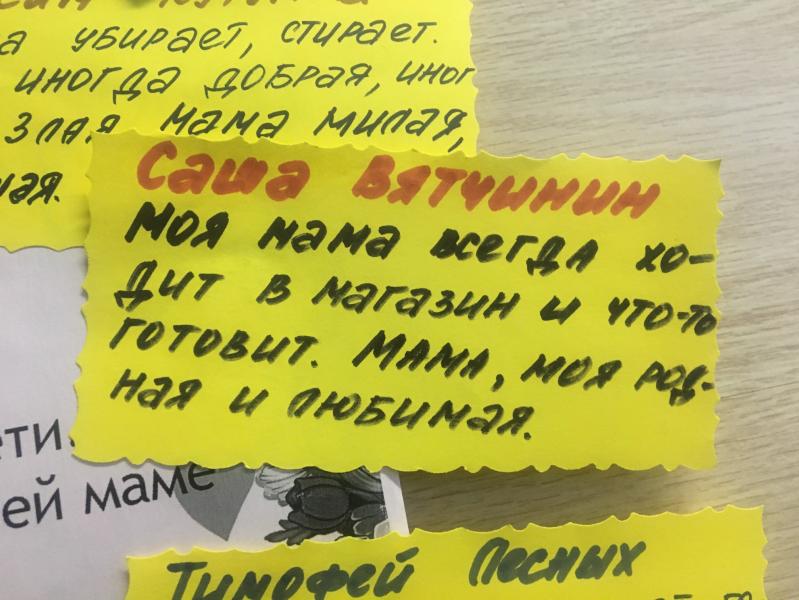 а убирает, стирает.
иногда добрая, иног
злая. Мама милая,
Саша Вятчинин
Моя мама всегда хо-
дит в магазин и что-то
готовит. Мама, моя род-
ная и любимая.
ети.
ей маме
Тимофей Лесных